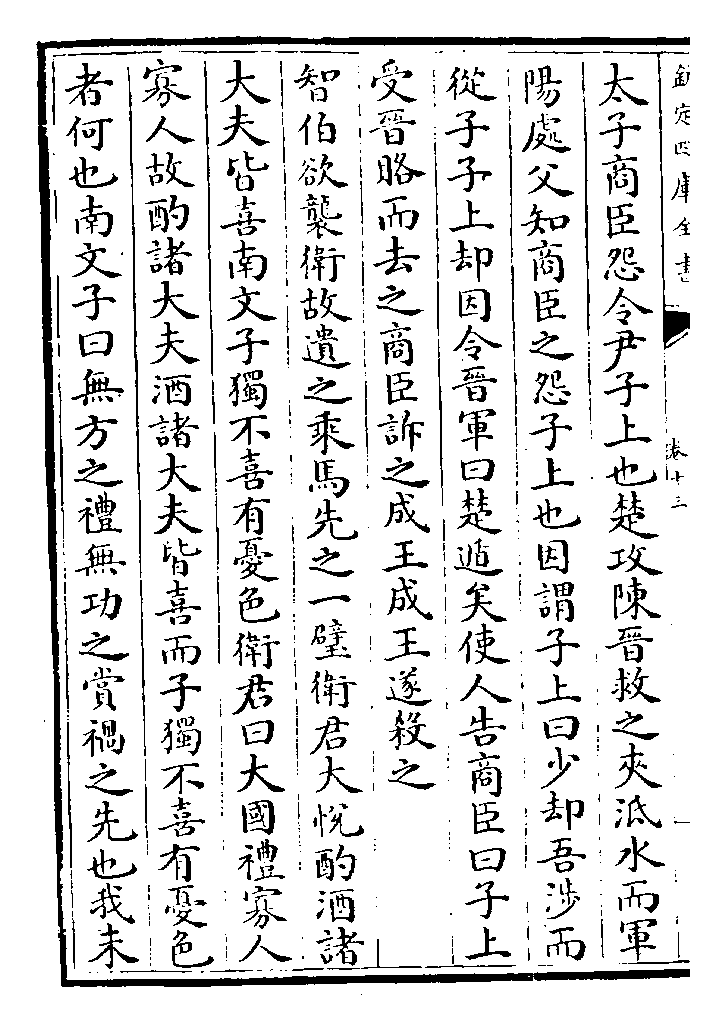 欽定四庫全書
卷十三
太子商臣怨令尹子上也楚攻陳晉救之夾泜水而軍
陽處父知商臣之怨子上也因謂子上曰少却吾涉而
從子子上却因令晉軍曰楚遁矣使人告商臣曰子上
受晉賂而去之商臣訴之成王成王遂殺之
智伯欲襲衛故遺之乘馬先之一璧衛君大悅酌酒諸
大夫皆喜南文子獨不喜有憂色衛君曰大國禮寡人
寡人故酌諸大夫酒諸大夫皆喜而子獨不喜有憂色
者何也南文子曰無方之禮無功之賞禍之先也我未